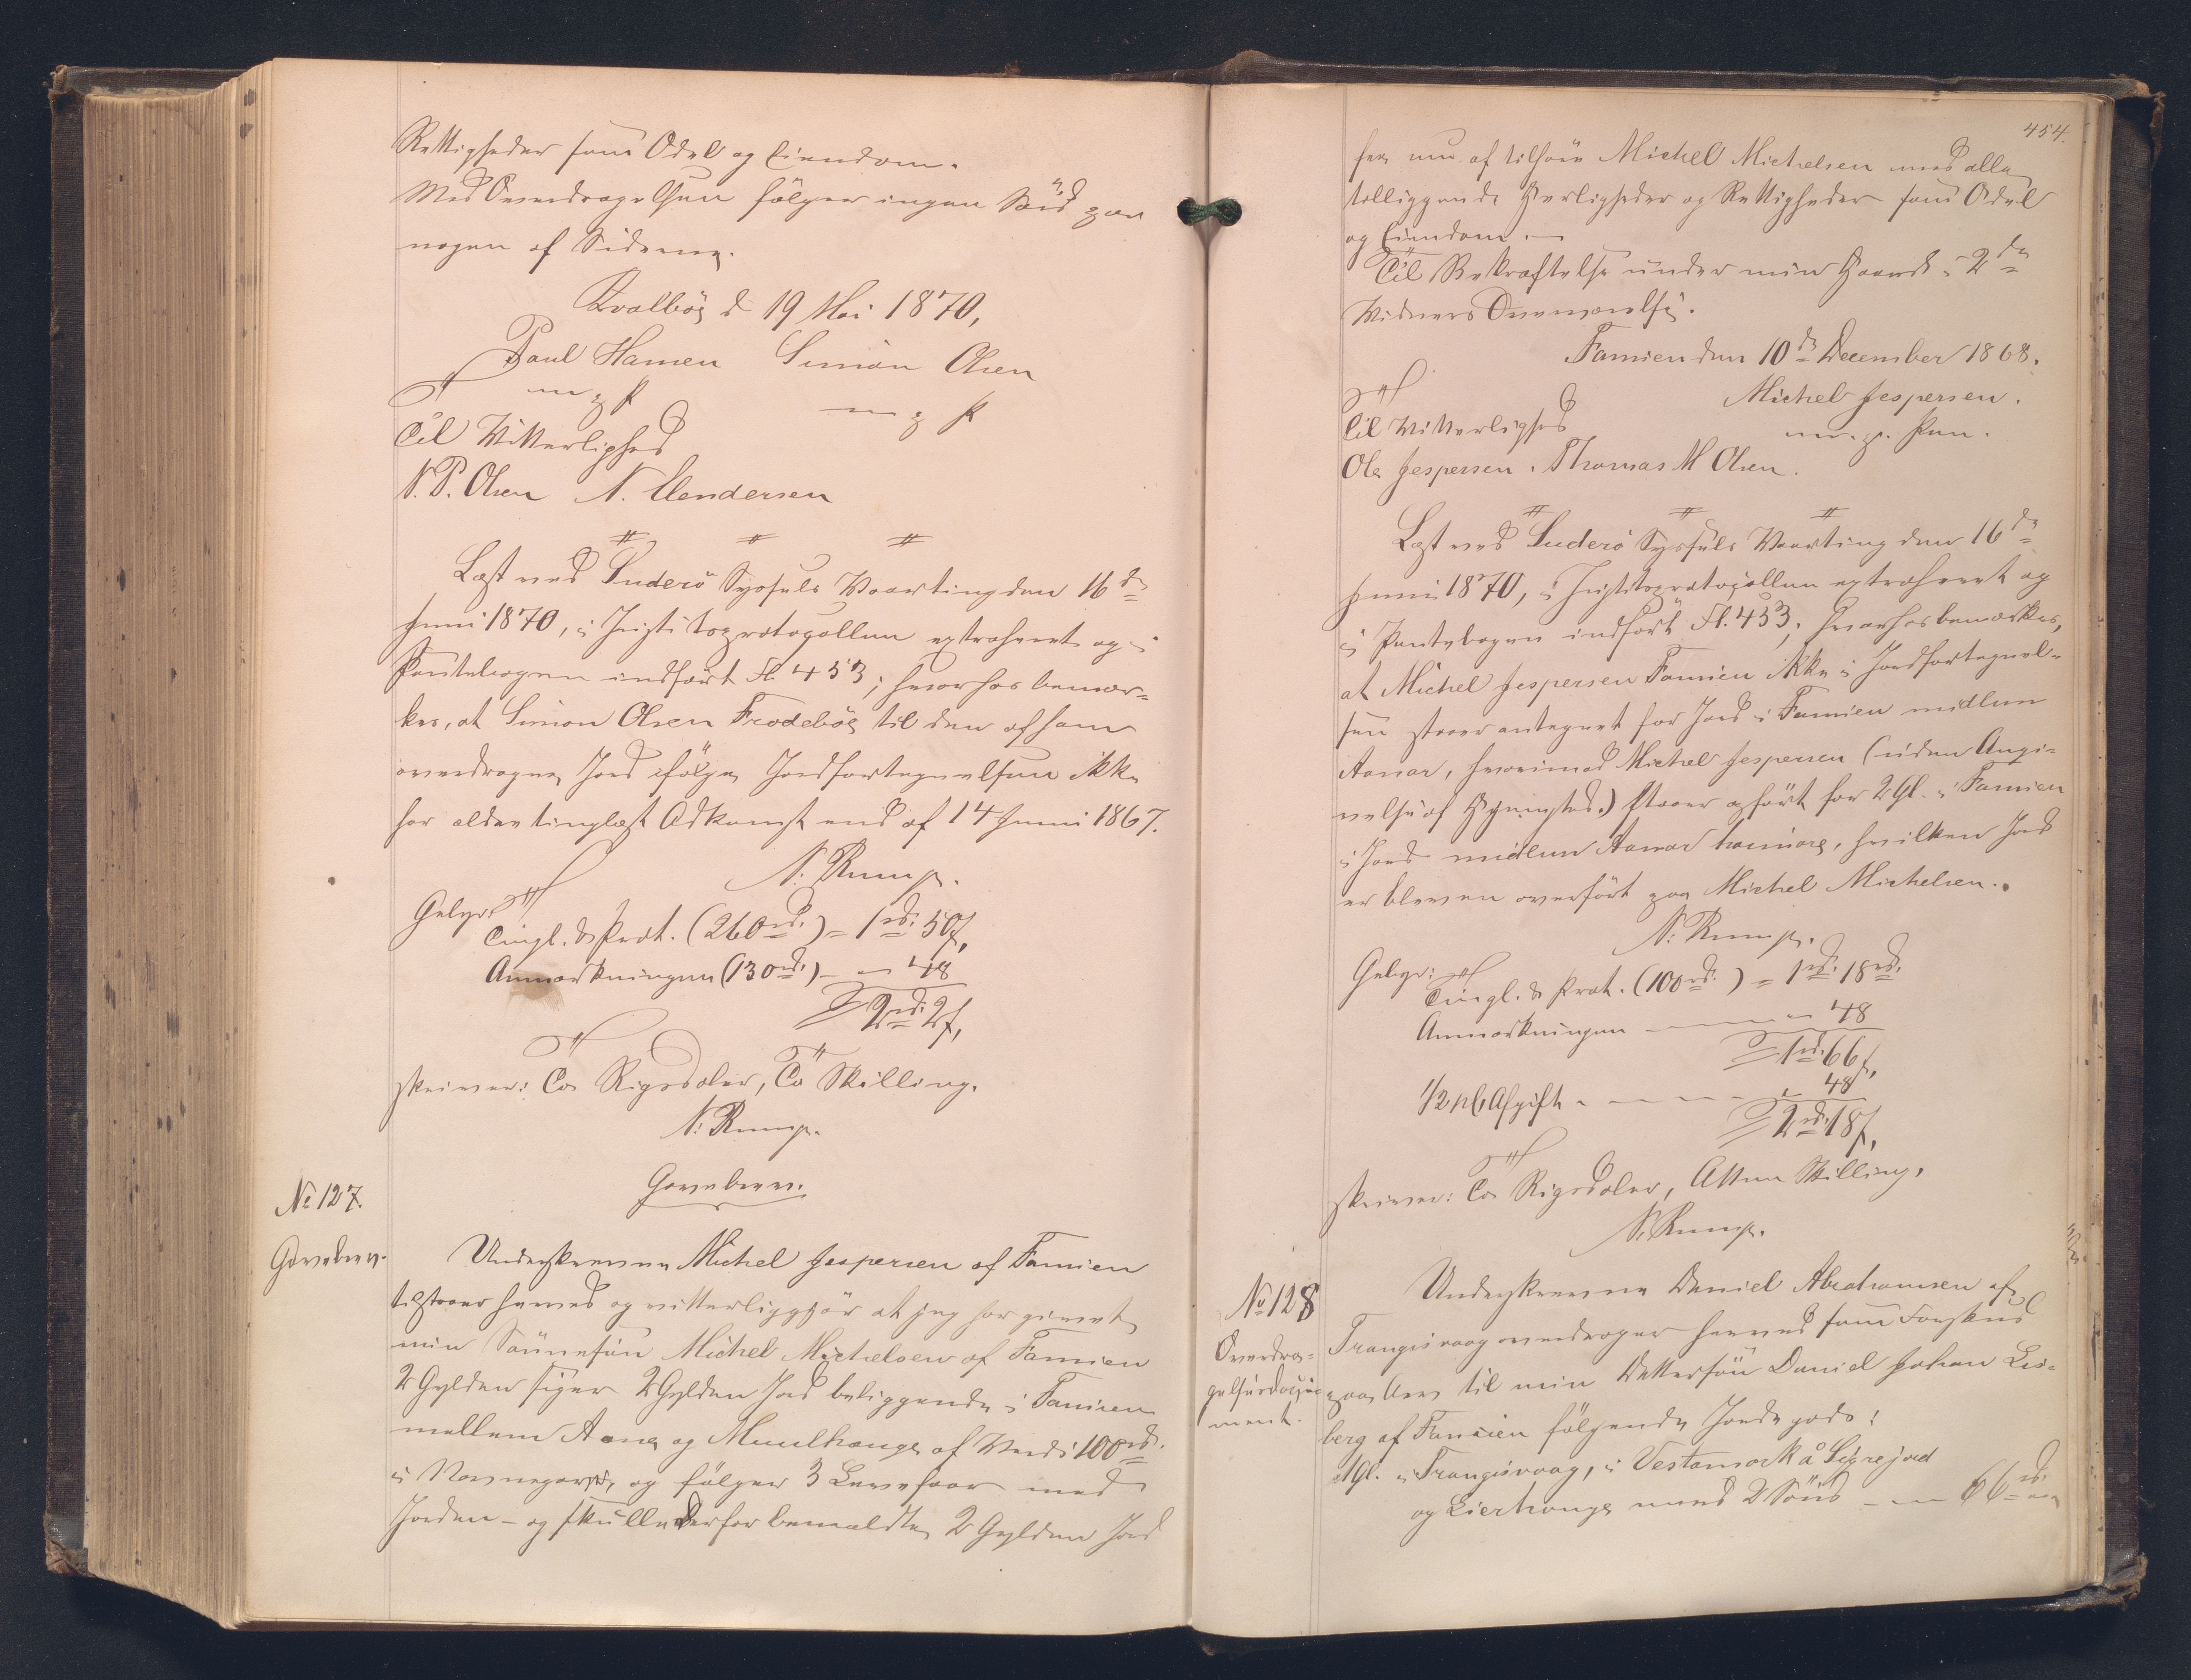 Rettigheder som Odel og Eiendom.
Med Overdragelsen følger ingen Sød paa
nogen af Siderne.
Kvalbøe d 19 Mai 1870,
Poul Hansen Simon Olsen
m p P m p P
Til Vitterlighed
N. P. Olsen N. Clendersen
Læst ved Suderø Syssels Vaarting den 16de
Juni 1870, i Justitsprotocollen extraheret og i
Pantebogen indført Fl. 453; hvorhos bemær-
kes, at Simon Olsen Frodebøe til den af ham
overdragne Jord ifølge Jordfortegnelsen ikke
har ældre tinglæst Adkomst end af 14 Juni 1867.
N: Rump.
Gebyr:
Tingl. & Prot. (260rd.) = 1rd. 50ſ,
Anmærkningen (130rd.) — " 48
2rd. 2ſ,
skriver: To Rigsdaler, To Skilling.
N: Rump.
Gavebrev.
No 127.
Gavebrev.
Underskrevne Michel Jespersen af Famien
tilstaaer herved og vitterliggjør at jeg har givet
min Sønnesøn Michel Michelsen af Famien
2 Gylden siger 2 Gylden Jord beliggende i Famien
mellem Aana og Muulhauge af Værdi 100rd.
i og følger 3 Levefaar med
Jorden - og skulle Derfor bemældte 2 Gylden Jord
454.
her nu af tilhøre Michel Michelsen med alle
tilliggende Herligheder og Rettigheder som Odel
og Eiendom. —
Til Bekræftelse under min Haand i 2de
Vidners Overværelse.
Famien den 10de December 1868.
Michel Jespersen.
m. p. Pen.
Til Vitterlighed
Ole Jespersen. Thomas M Olsen.
Læst ved Suderø Syssels Vaarting den 16de
Juni 1870, i Justitsprotocollen extraheret og
i Pantebogen indført Fl. 453; hvorhos bemærkes,
at Michel Jespersen Famien ikke i Jordfortegnel-
sen staaer antegnet for Jord i Famien midlum
Aanar, hvorimod Michel Jespersen (uden Angi-
velse af Hjemsted.) staaer opført for 2 Gl. i Famien
i Jord midlum Aanar hauiore, hvilken Jord
er bleven overført paa Michel Michelsen.
N: Rump.
Gebyr:
Tingl. & Prot. (100rd.) = 1rd. 18rd.
Anmærkningen — " 48
1rd. 66ſ,
1/2 pCt Afgift - — — — " 48
2rd. 18ſ,
skriver: To Rigsdaler, Atten Skilling.
N. Rump.
No 128
Overdra-
gelsesdocu-
ment.
Underskrevne Daniel Abrahamsen af
Trangisvaag overdrager herved som Forskud
paa Arv til min Dattersøn Daniel Johan Lis-
berg af Famien følgende Jordegods:
1 Gl. i Trangisvaag, i Vestamork å Ligrejord
og Lierhauge med 2 Søud — " 66rd.